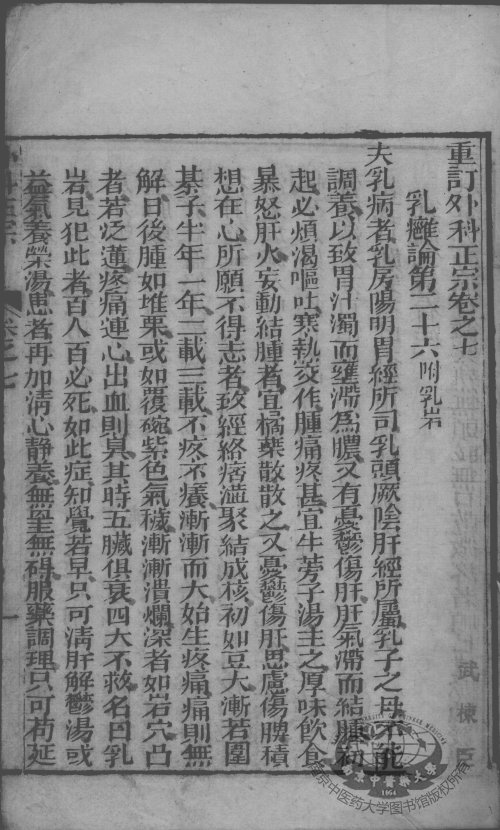 重訂外科正宗卷之七
乳癰論第二十六附乳岩
夫乳病者乳房陽明胃經所司乳頭厥陰肝經所屬乳子之母不能
調養以致胃汁濁而壅滯為膿又有憂鬱傷肝肝氣滯而結腫初
起必煩渴嘔吐寒熱交作腫痛疼甚宜牛蒡子湯主之厚味飲食
暴怒肝火妄動結腫者宜橘葉散散之又憂鬱傷肝思慮傷脾積
想在心所願不得志者致經絡痞澁聚結成核初如豆大漸若圍
碁子半年一年二載三載不疼不癢漸漸而大始生疼痛痛則無
解日後腫如堆栗或如覆碗紫色氣穢漸漸潰爛深者如岩穴凸
者若泛蓮疼痛連心出血則臭其時五臟俱衰四大不救名曰乳
岩見犯此者百人百必死如此症知覺若早只可清肝解鬱湯或
益氣養榮湯患者再加清心靜養無罣無碍服藥調理只可苟延
卷之七
一
武棟臣
1954
南京中医药大学图书馆版权所有